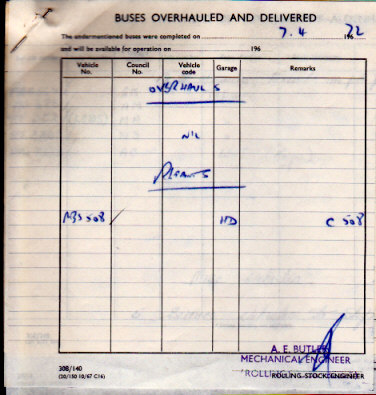 BUSES OVERHAULED AND DELIVERED
The undermentioned buses were completed on 7.4 196 72
and will be available for operation on 196
Vehicle No. Council No. Vehicle code Garage Remarks
OVERHAULS
NIL
REPAINTS
MBS 508 / HD C 508
A. E. BUTLER
MECHANICAL ENGINEER
"ROLLING
ROLLING STOCK ENGINEER
30B/140
(20/150 10/67 C16)